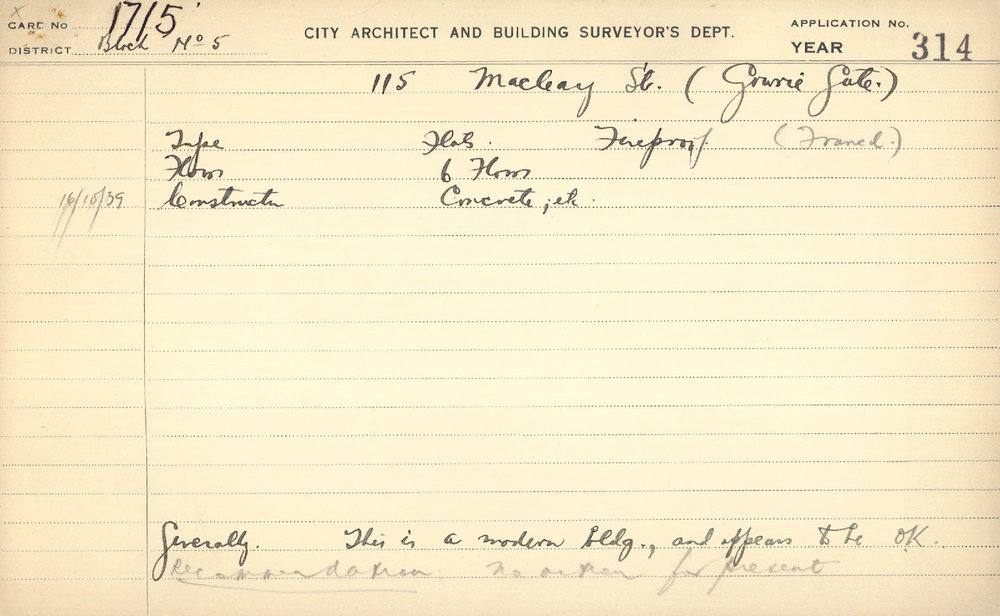 x
CARD No 1715'
CITY ARCHITECT AND BUILDING SURVEYOR'S DEPT.
APPLICATION No.
DISTRICT Block No 5
YEAR 314
115 Macleay St. (Gowrie Gate.)
Type Flats. Fireproof. (Framed.)
Floors 6 Floors
16/10/39 Constructn Concrete, etc.
Generally. This is a modern bldg., and appears to be OK.
Recommendation. No action for present